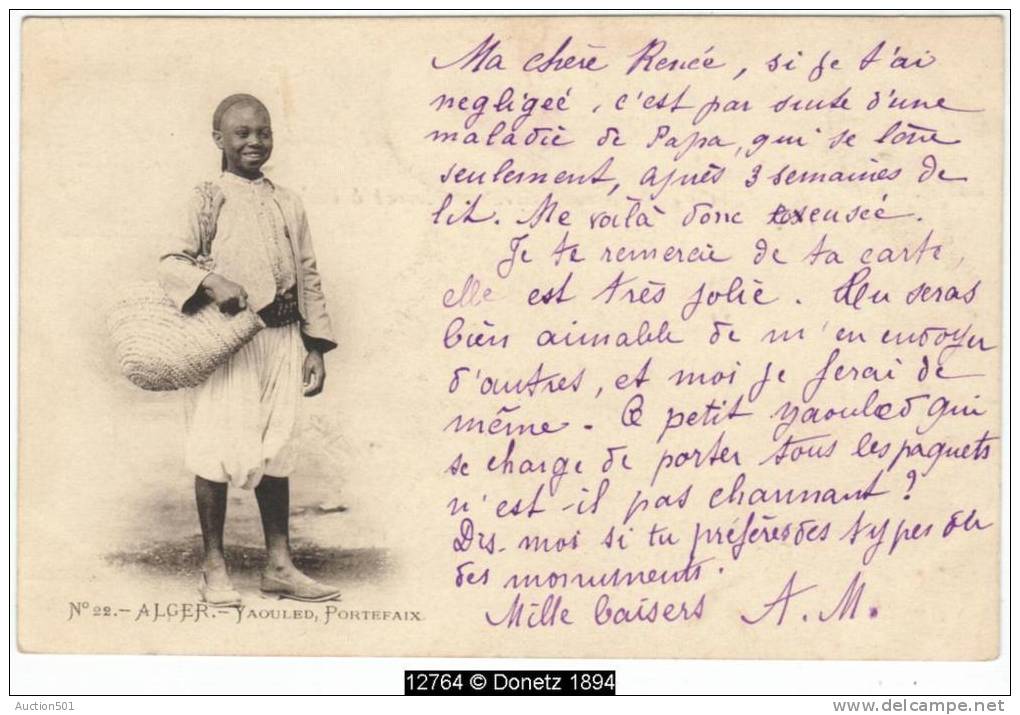 Ma chère Renée, si je t'ai
negligeé, c'est par suite d'une
maladie de Papa, qui se lève
seulement, après 3 semaines de
lit. Me voilà donc excusée.
Je te remercie de ta carte,
elle est très jolie. Tu seras
bien aimable de m'en envoyer
d'autres, et moi je ferai de
même - Ce petit yaouled qui
se charge de porter tous les paquets
n'est-il pas charmant ?
Dis-moi si tu préfères des types ou
des monuments.
Mille baisers A. M.
No 22.- ALGER.- YAOULED, PORTEFAIX.
12764 © Donetz 1894
Auction501
www.delcampe.net